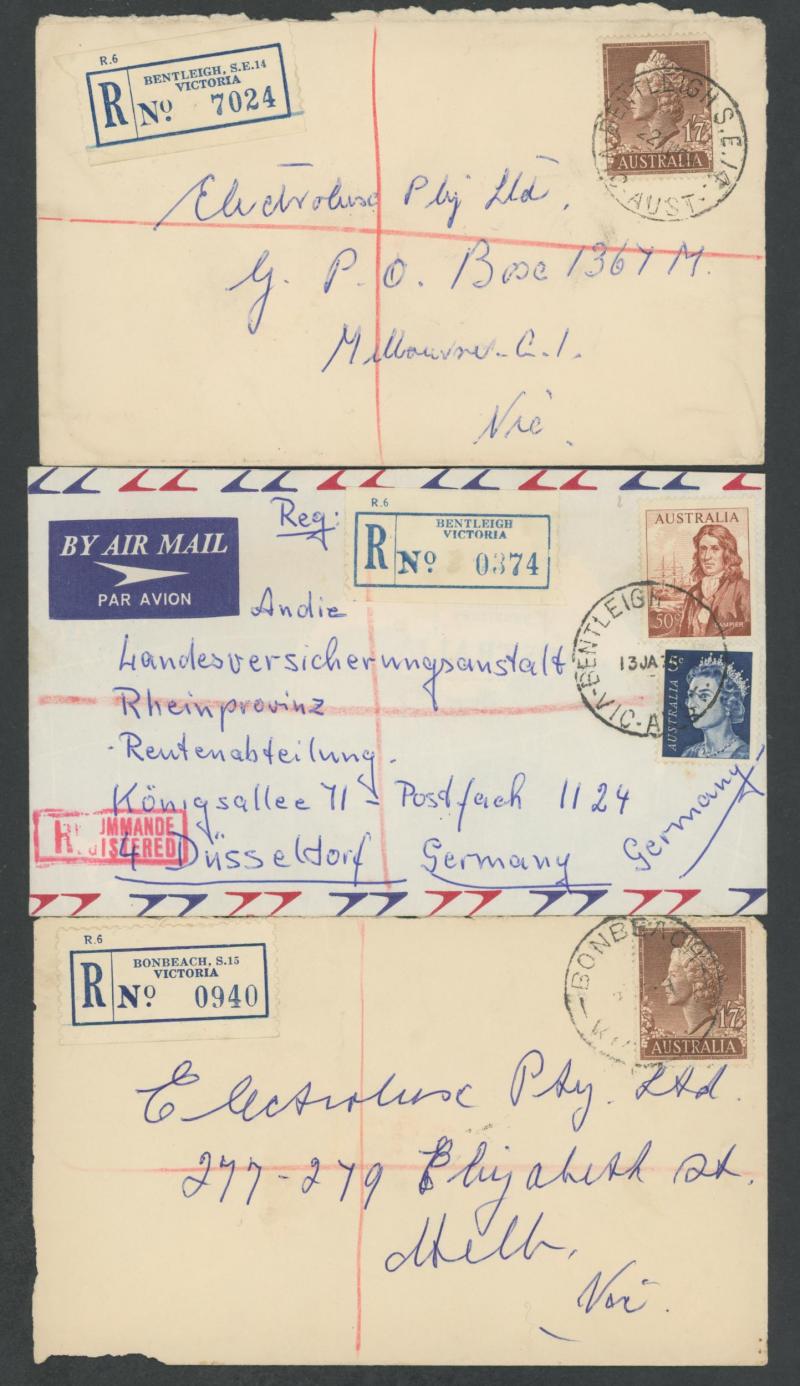 R.6
BENTLEIGH, S.E.14
VICTORIA
R No 7024
1'7
AUSTRALIA
BENTLEIGH S.E.14
VIC-AUST.
Electrolux Pty Ltd,
G. P. O. Box 1367 M.
Melbourne. C. 1.
Vic.
BY AIR MAIL
PAR AVION
Reg:
R.6
BENTLEIGH
VICTORIA
R No 0374
AUSTRALIA
50c
DAMPIER
BENTLEIGH
13JA
VIC-A
5c
AUSTRALIA
An die
Landesversicherungsanstalt
Rheinprovinz
-Rentenabteilung.
Königsallee 71 - Postfach 1124
4 Düsseldorf Germany Germany
RECOMMANDE
REGISTERED
R.6
BONBEACH, S.15
VICTORIA
R No 0940
BONBEACH
1'7
AUSTRALIA
Electrolux Pty. Ltd.
277-279 Elizabeth St.
Melb,
Vic.